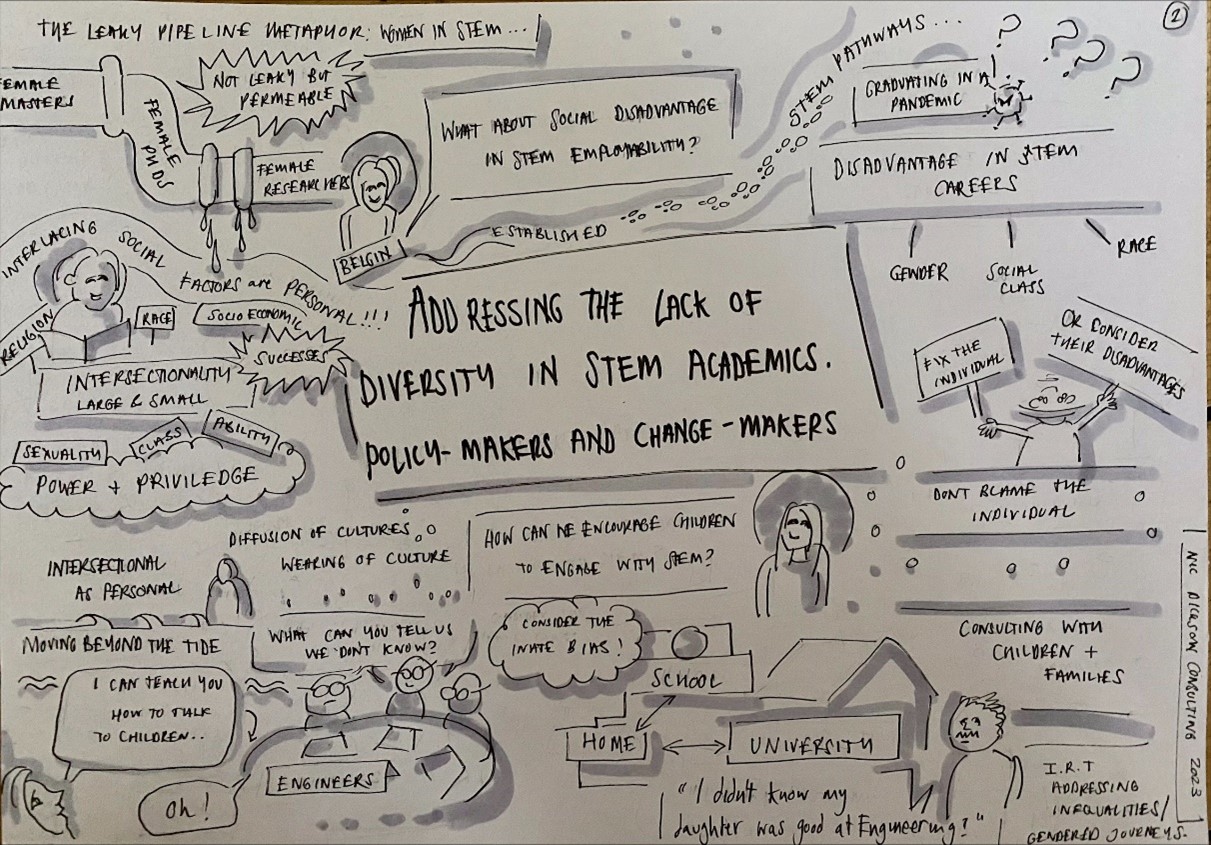 THE LEAKY PIPELINE METAPHOR: WOMEN IN STEM...
2
FEMALE
MASTERS
FEMALE
PHDS
NOT LEAKY BUT
PERMEABLE
FEMALE
RESEARCHERS
WHAT ABOUT SOCIAL DISADVANTAGE
IN STEM EMPLOYABILITY?
BELGIN
ESTABLISHED
STEM PATHWAYS...
GRADUATING IN A
PANDEMIC
? ? ? ?
DISADVANTAGE IN STEM
CAREERS
GENDER
SOCIAL
CLASS
RACE
INTERLACING SOCIAL
FACTORS are PERSONAL!!!
RELIGION
RACE
SOCIO ECONOMIC
SUCCESSES
INTERSECTIONALITY
LARGE & SMALL
SEXUALITY
CLASS
ABILITY
POWER + PRIVILEDGE
ADDRESSING THE LACK OF
DIVERSITY IN STEM ACADEMICS.
POLICY-MAKERS AND CHANGE-MAKERS
FIX THE
INDIVIDUAL
OR CONSIDER
THEIR DISADVANTAGES
DONT BLAME THE
INDIVIDUAL
CONSULTING WITH
CHILDREN +
FAMILIES
DIFFUSION OF CULTURES
WEARING OF CULTURE
INTERSECTIONAL
AS PERSONAL
MOVING BEYOND THE TIDE
HOW CAN WE ENCOURAGE CHILDREN
TO ENGAGE WITH STEM?
CONSIDER THE
INATE BIAS!
WHAT CAN YOU TELL US
WE DON'T KNOW?
I CAN TEACH YOU
HOW TO TALK
TO CHILDREN..
Oh!
ENGINEERS
SCHOOL
HOME
UNIVERSITY
"I didn't know my
daughter was good at Engineering!"
I.R.T
ADDRESSING
INEQUALITIES/
GENDERED JOURNEYS.
NIC DICKSON CONSULTING 2023